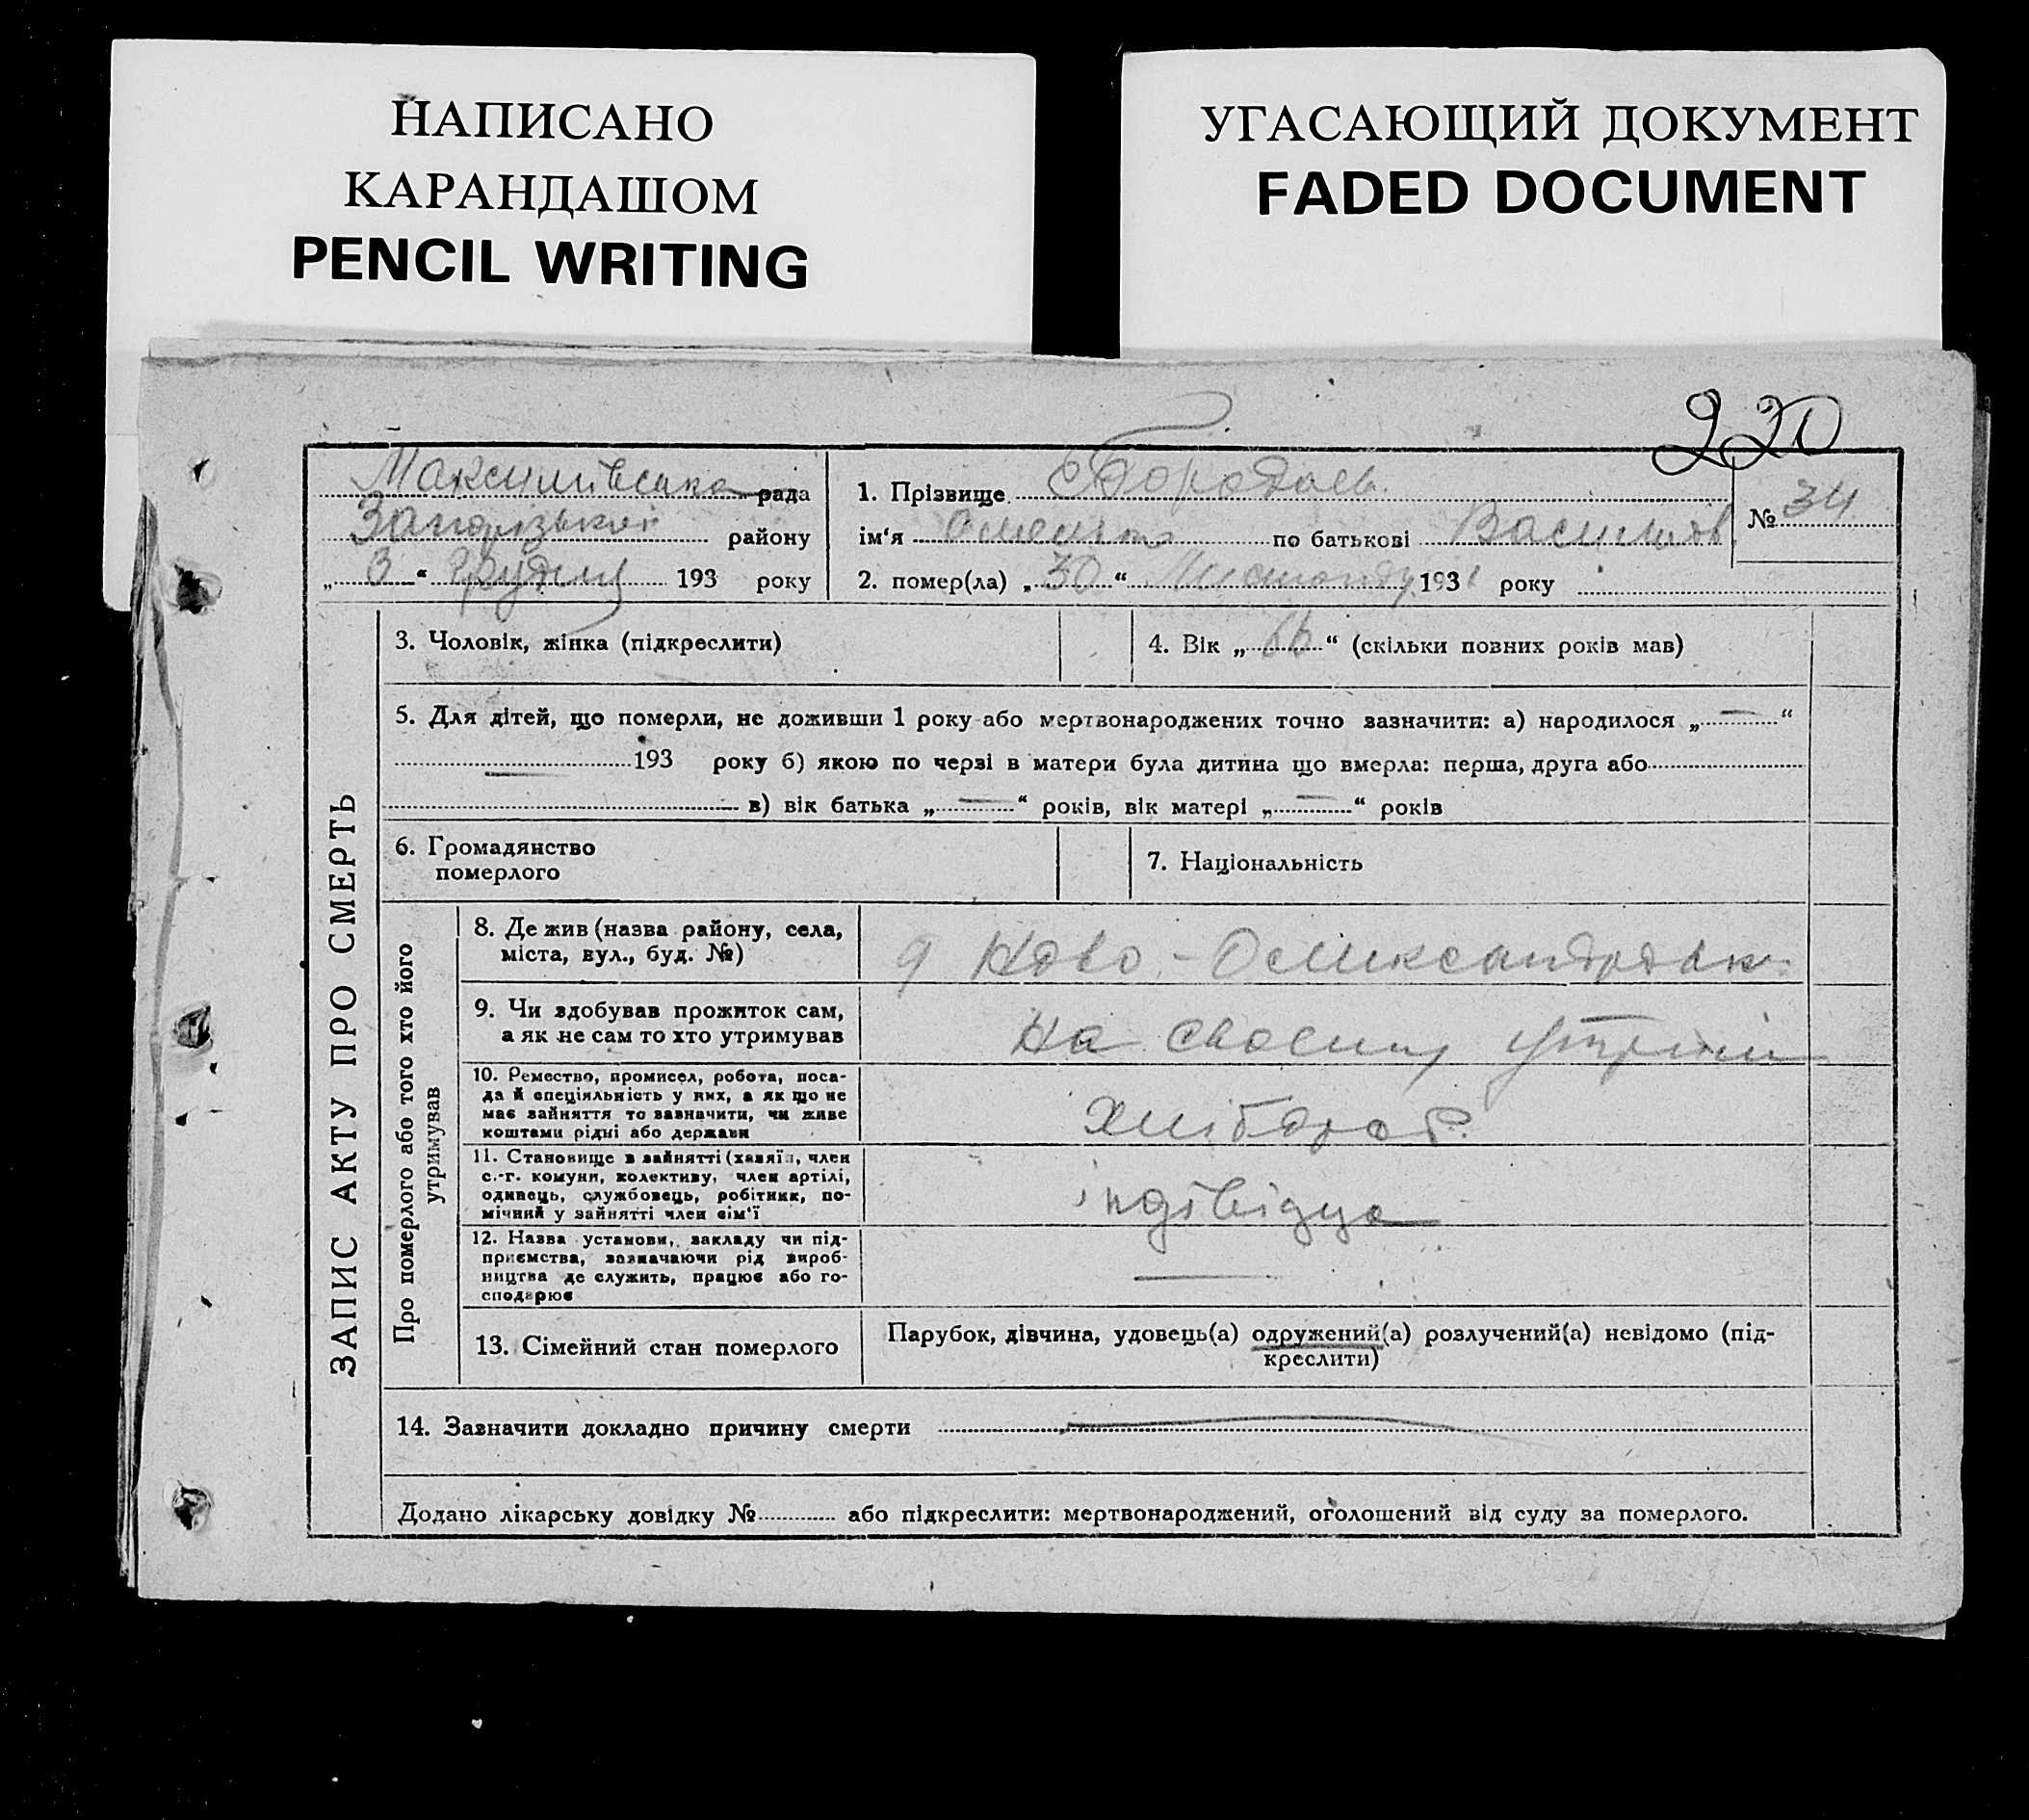 НАПИСАНО
КАРАНДАШОМ
PENCIL WRITING
УГАСАЮЩИЙ ДОКУМЕНТ
FADED DOCUMENT
220
рада
району
„ 3 “ Грудня 193 року
1. Прізвище
ім‘я по батькові
2. помер(ла) „ 30 “ 193 року
№ 34
ЗАПИС АКТУ ПРО СМЕРТЬ
3. Чоловік, жінка (підкреслити)
4. Вік „ “ (скільки повних років мав)
5. Для дітей, що померли, не доживши 1 року або мертвонароджених точно зазначити: а) народилося „ — “
— 193 року б) якою по черзі в матери була дитина що вмерла: перша, друга або
в) вік батька „ — “ років, вік матері „ — “ років
6. Громадянство
померлого
7. Національність
Про померлого або того хто його
утримував
8. Де жив (назва району, села,
міста, вул., буд. №)
9. Чи здобував прожиток сам,
а як не сам то хто утримував
На своєму
10. Ремество, промисел, робота, поса-
да й спеціяльність у них, а як що не
має зайняття то зазначити, чи живе
коштами рідні або держави
Хлібороб.
11. Становище в зайнятті (хазяїн, член
с.-г. комуни, колективу, член артілі,
одинець, службовець, робітник, по-
мічний у зайнятті член сім‘ї
12. Назва установи, закладу чи під-
приємства, зазначаючи рід вироб-
ництва де служить, працює або го-
сподарює
—
13. Сімейний стан померлого
Парубок, дівчина, удовець(а) одружений(а) розлучений(а) невідомо (під-
креслити)
14. Зазначити докладно причину смерти —
Додано лікарську довідку № або підкреслити: мертвонароджений, оголошений від суду за померлого.